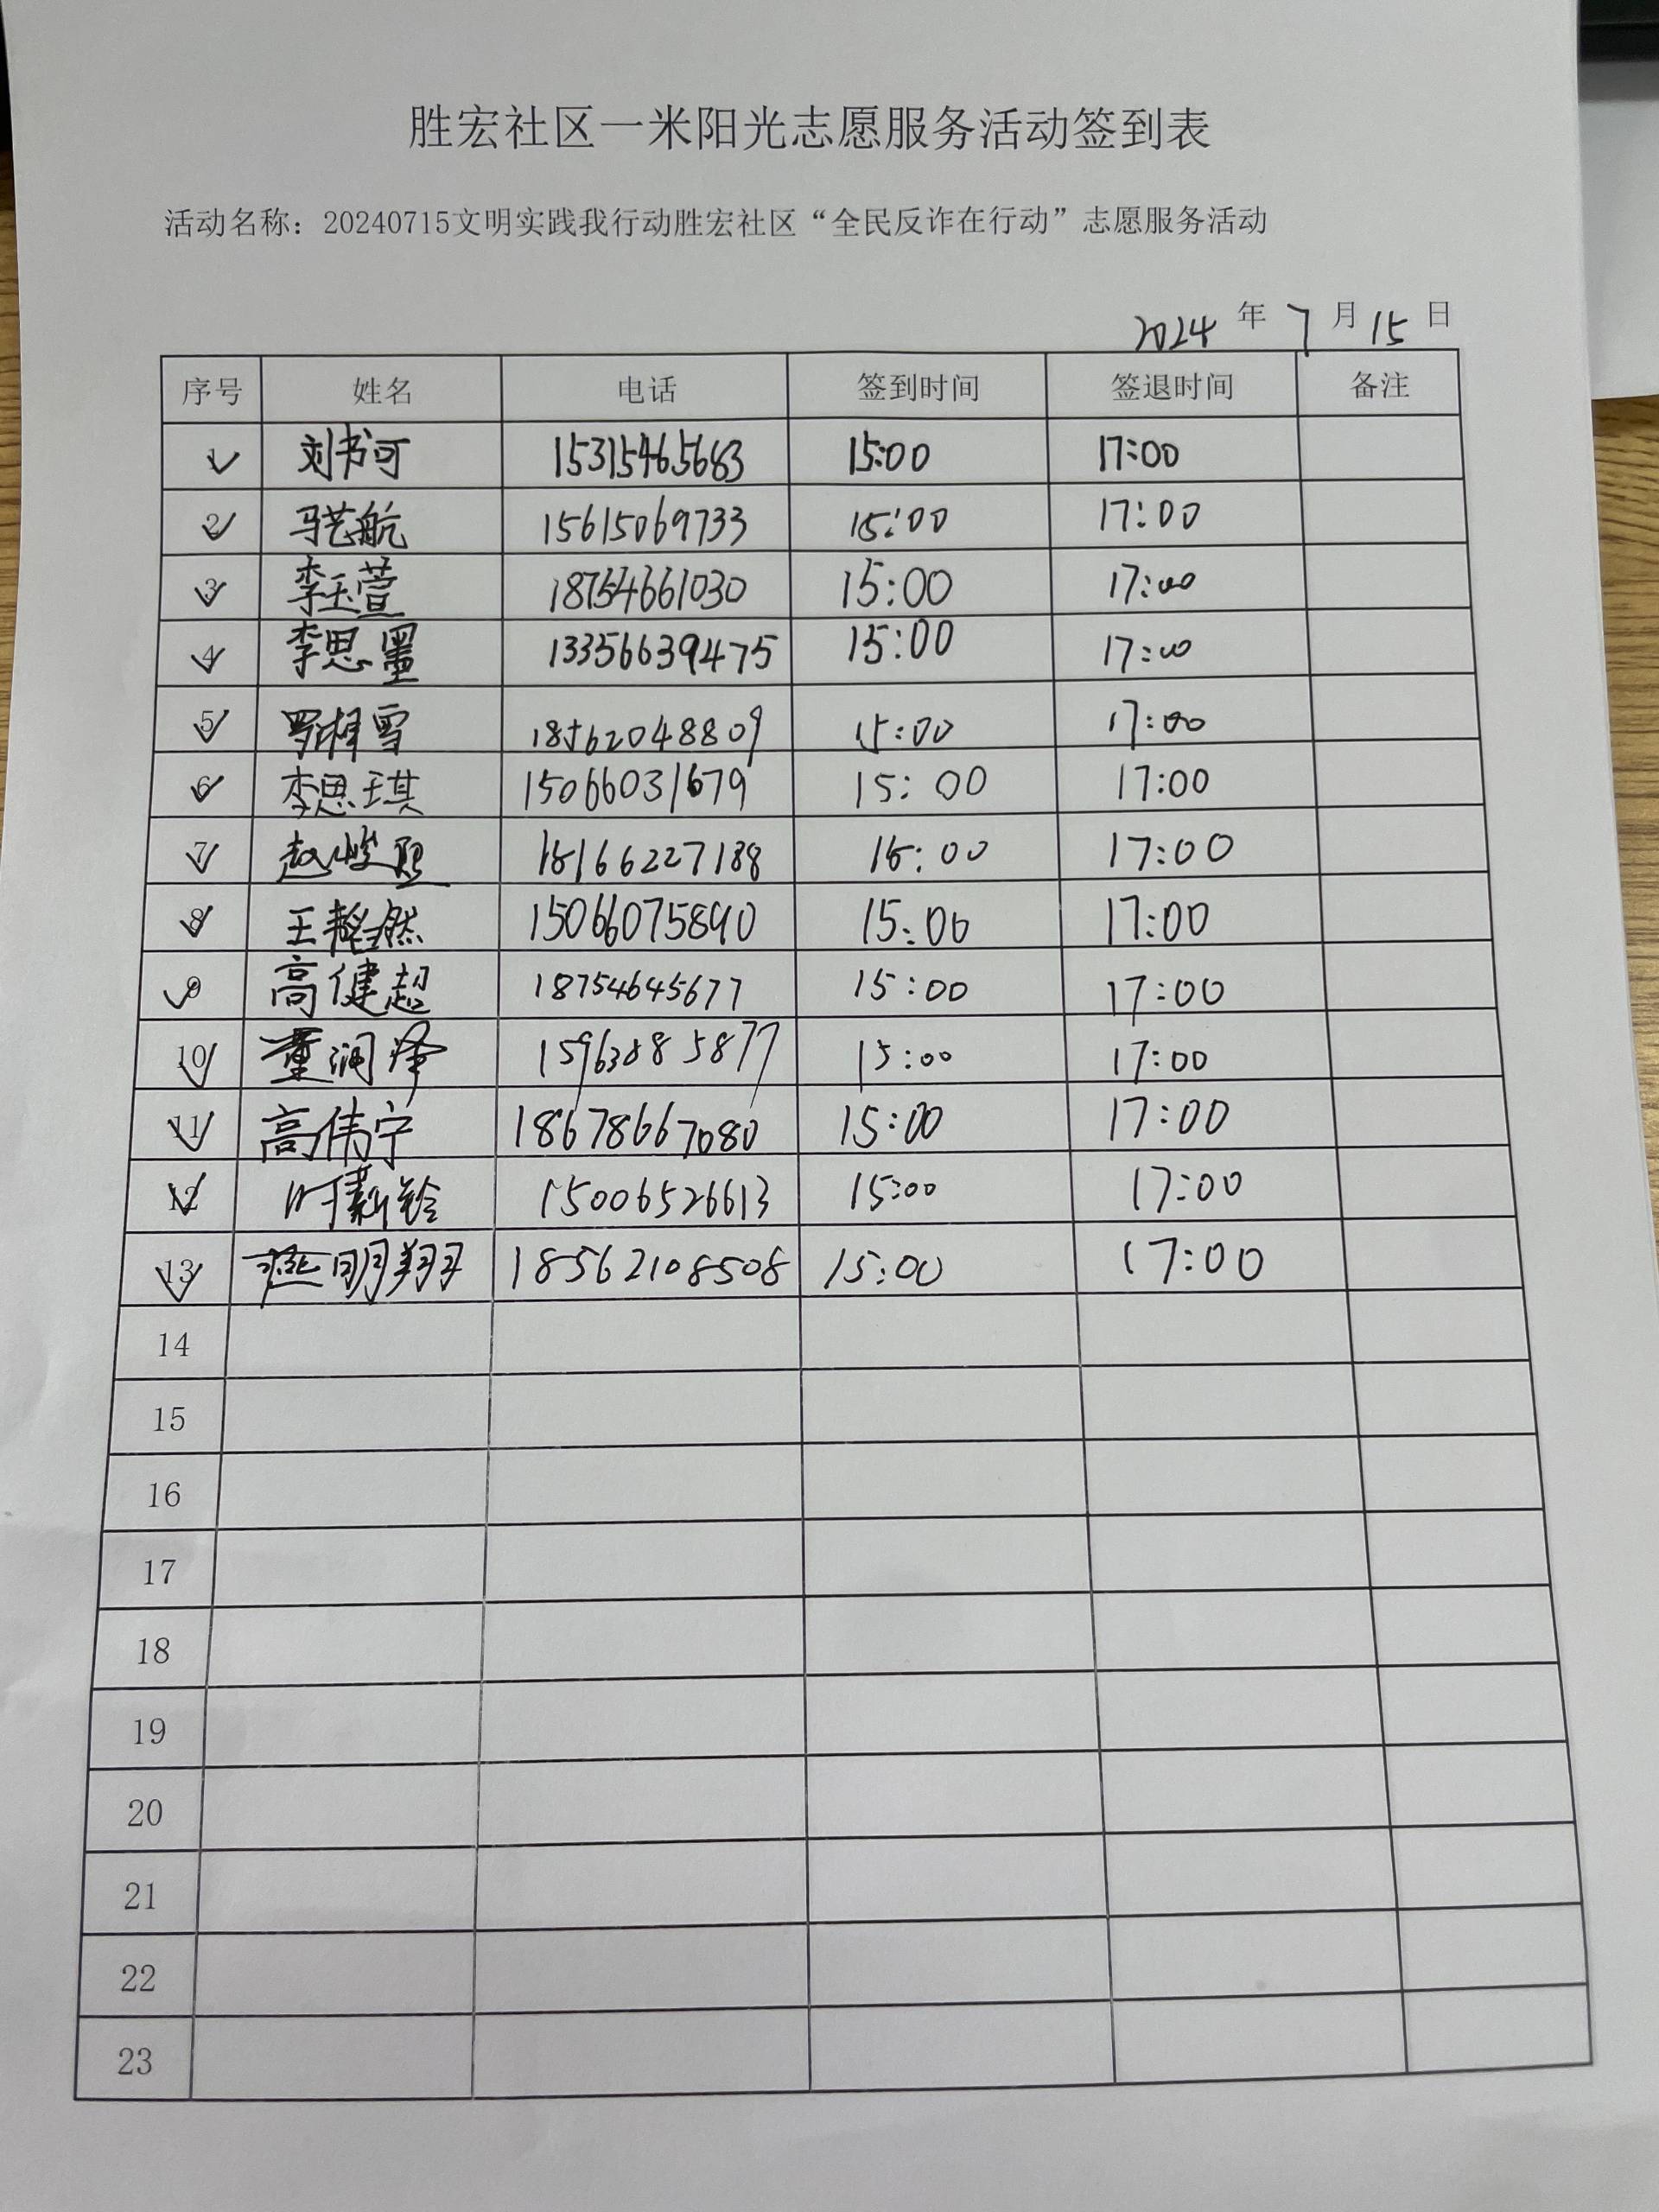 胜宏社区一米阳光志愿服务活动签到表
活动名称：20240715文明实践我行动胜宏社区“全民反诈在行动”志愿服务活动
2024 年 7 月 15 日
序号 姓名 电话 签到时间 签退时间 备注
1 刘书可 15315465683 15:00 17:00
2 马艺航 15615069733 15:00 17:00
3 李玉萱 18754661030 15:00 17:00
4 李思墨 13356639475 15:00 17:00
5 罗梓雪 18562048809 15:00 17:00
6 李思琪 15066031679 15:00 17:00
7 赵峻熙 18166227188 15:00 17:00
8 王 然 15066075890 15:00 17:00
9 高健超 18754645677 15:00 17:00
10 董润泽 15963885877 15:00 17:00
11 高伟宁 18678667080 15:00 17:00
12 时新铃 15006526613 15:00 17:00
13 燕明翔 18562108508 15:00 17:00
14
15
16
17
18
19
20
21
22
23